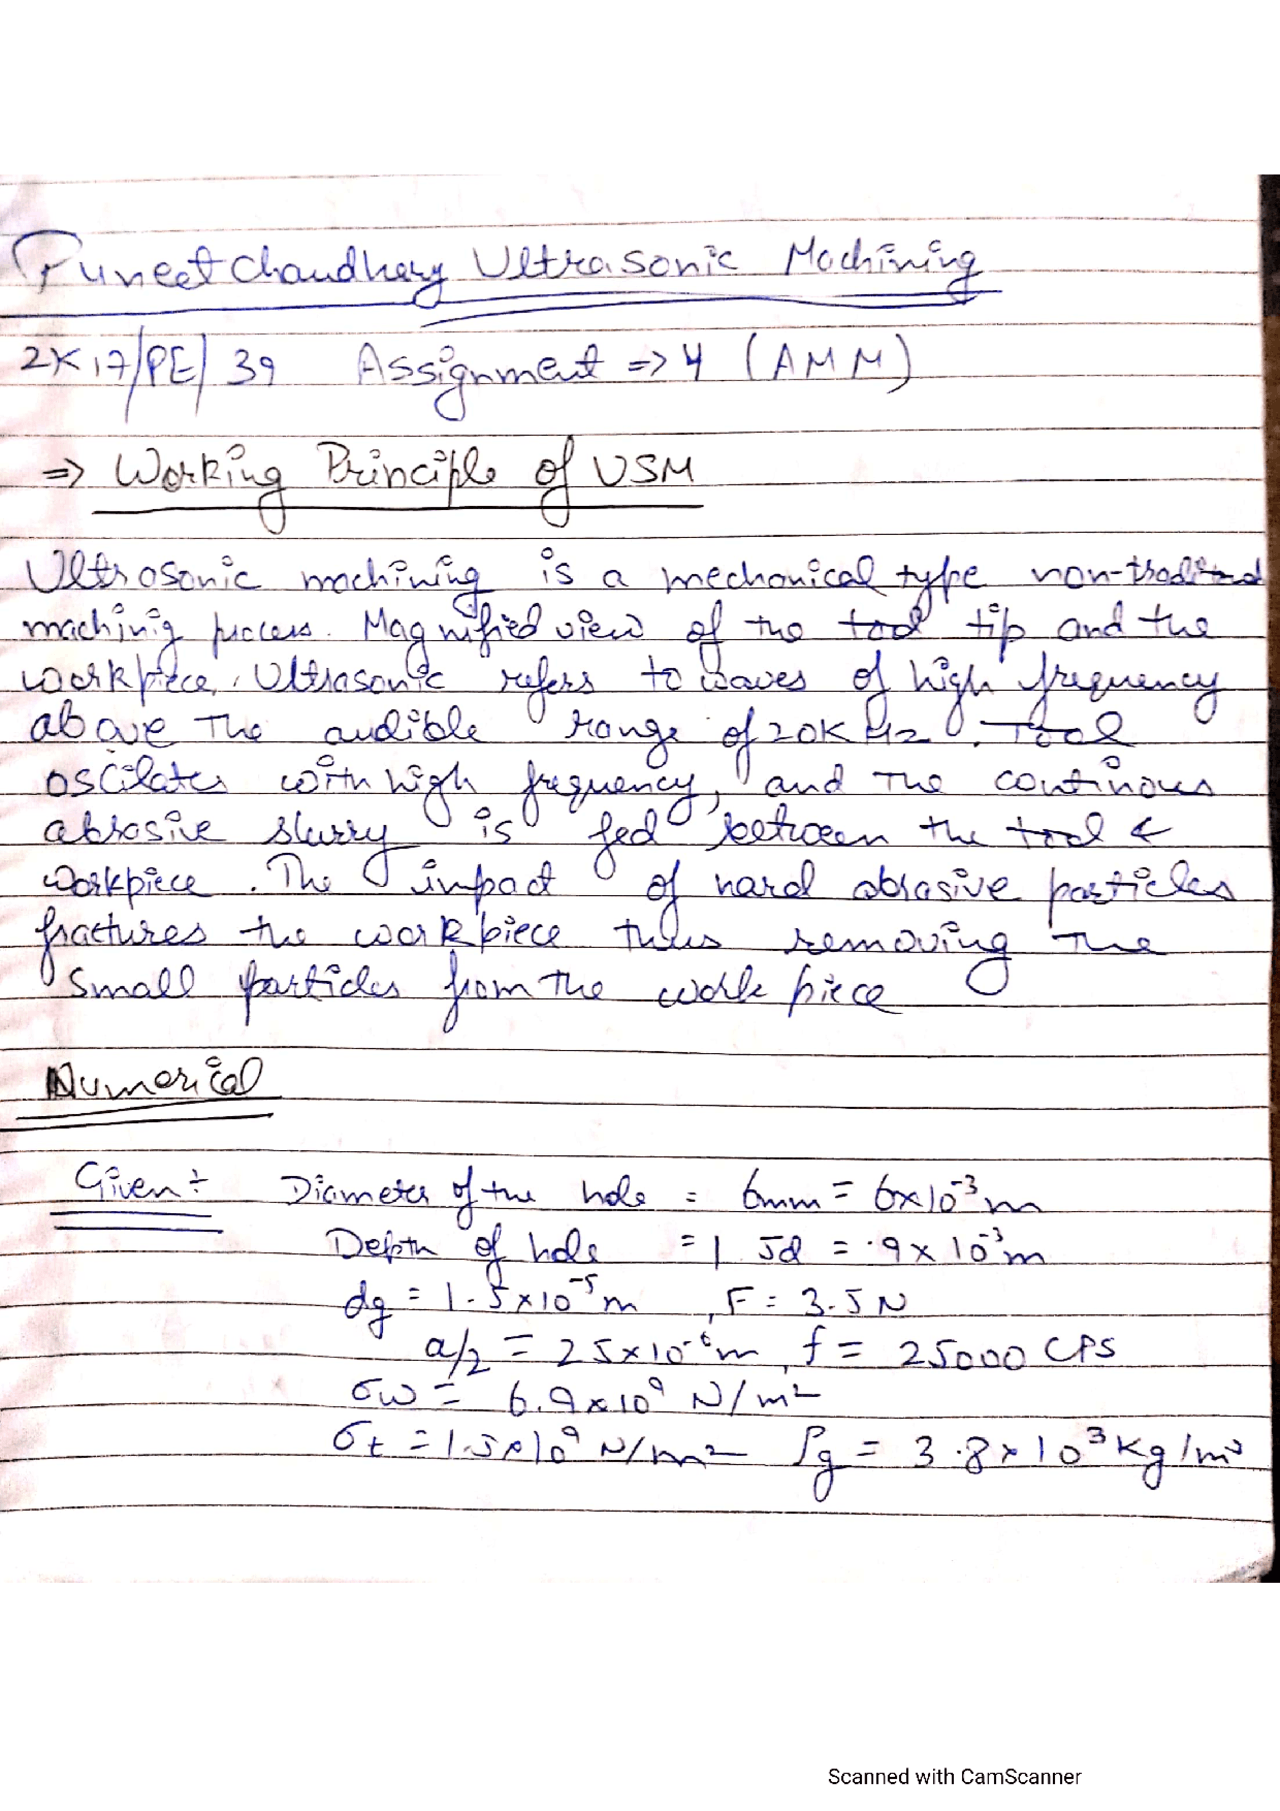 Puneet Chaudhary Ultrasonic Machining
2K17/PE/39 Assignment => 4 (AMM)
=> Working Principle of USM
Ultrasonic machining is a mechanical type non-traditional
machinig process. Magnified view of the tool tip and the
workpiece. Ultrasonic refers to waves of high frequency
above the audible range of 20KHz. Tool
oscilates with high frequency, and the continous
abrasive slurry is fed between the tool &
workpiece. The impact of hard abrasive particles
fractures the workpiece thus removing the
small particles from the work piece
Numerical
Given ÷ Diameter of the hole = 6mm = 6x10⁻³ m
Depth of hole = 1.5d = 9x10⁻³m
dg = 1.5x10⁻⁵m, F = 3.5N
a/2 = 25x10⁻⁶m, f = 25000 CPS
σw = 6.9x10⁹ N/m²
σt = 1.5x10⁹ N/m² ρg = 3.8x10³ Kg/m³
Scanned with CamScanner